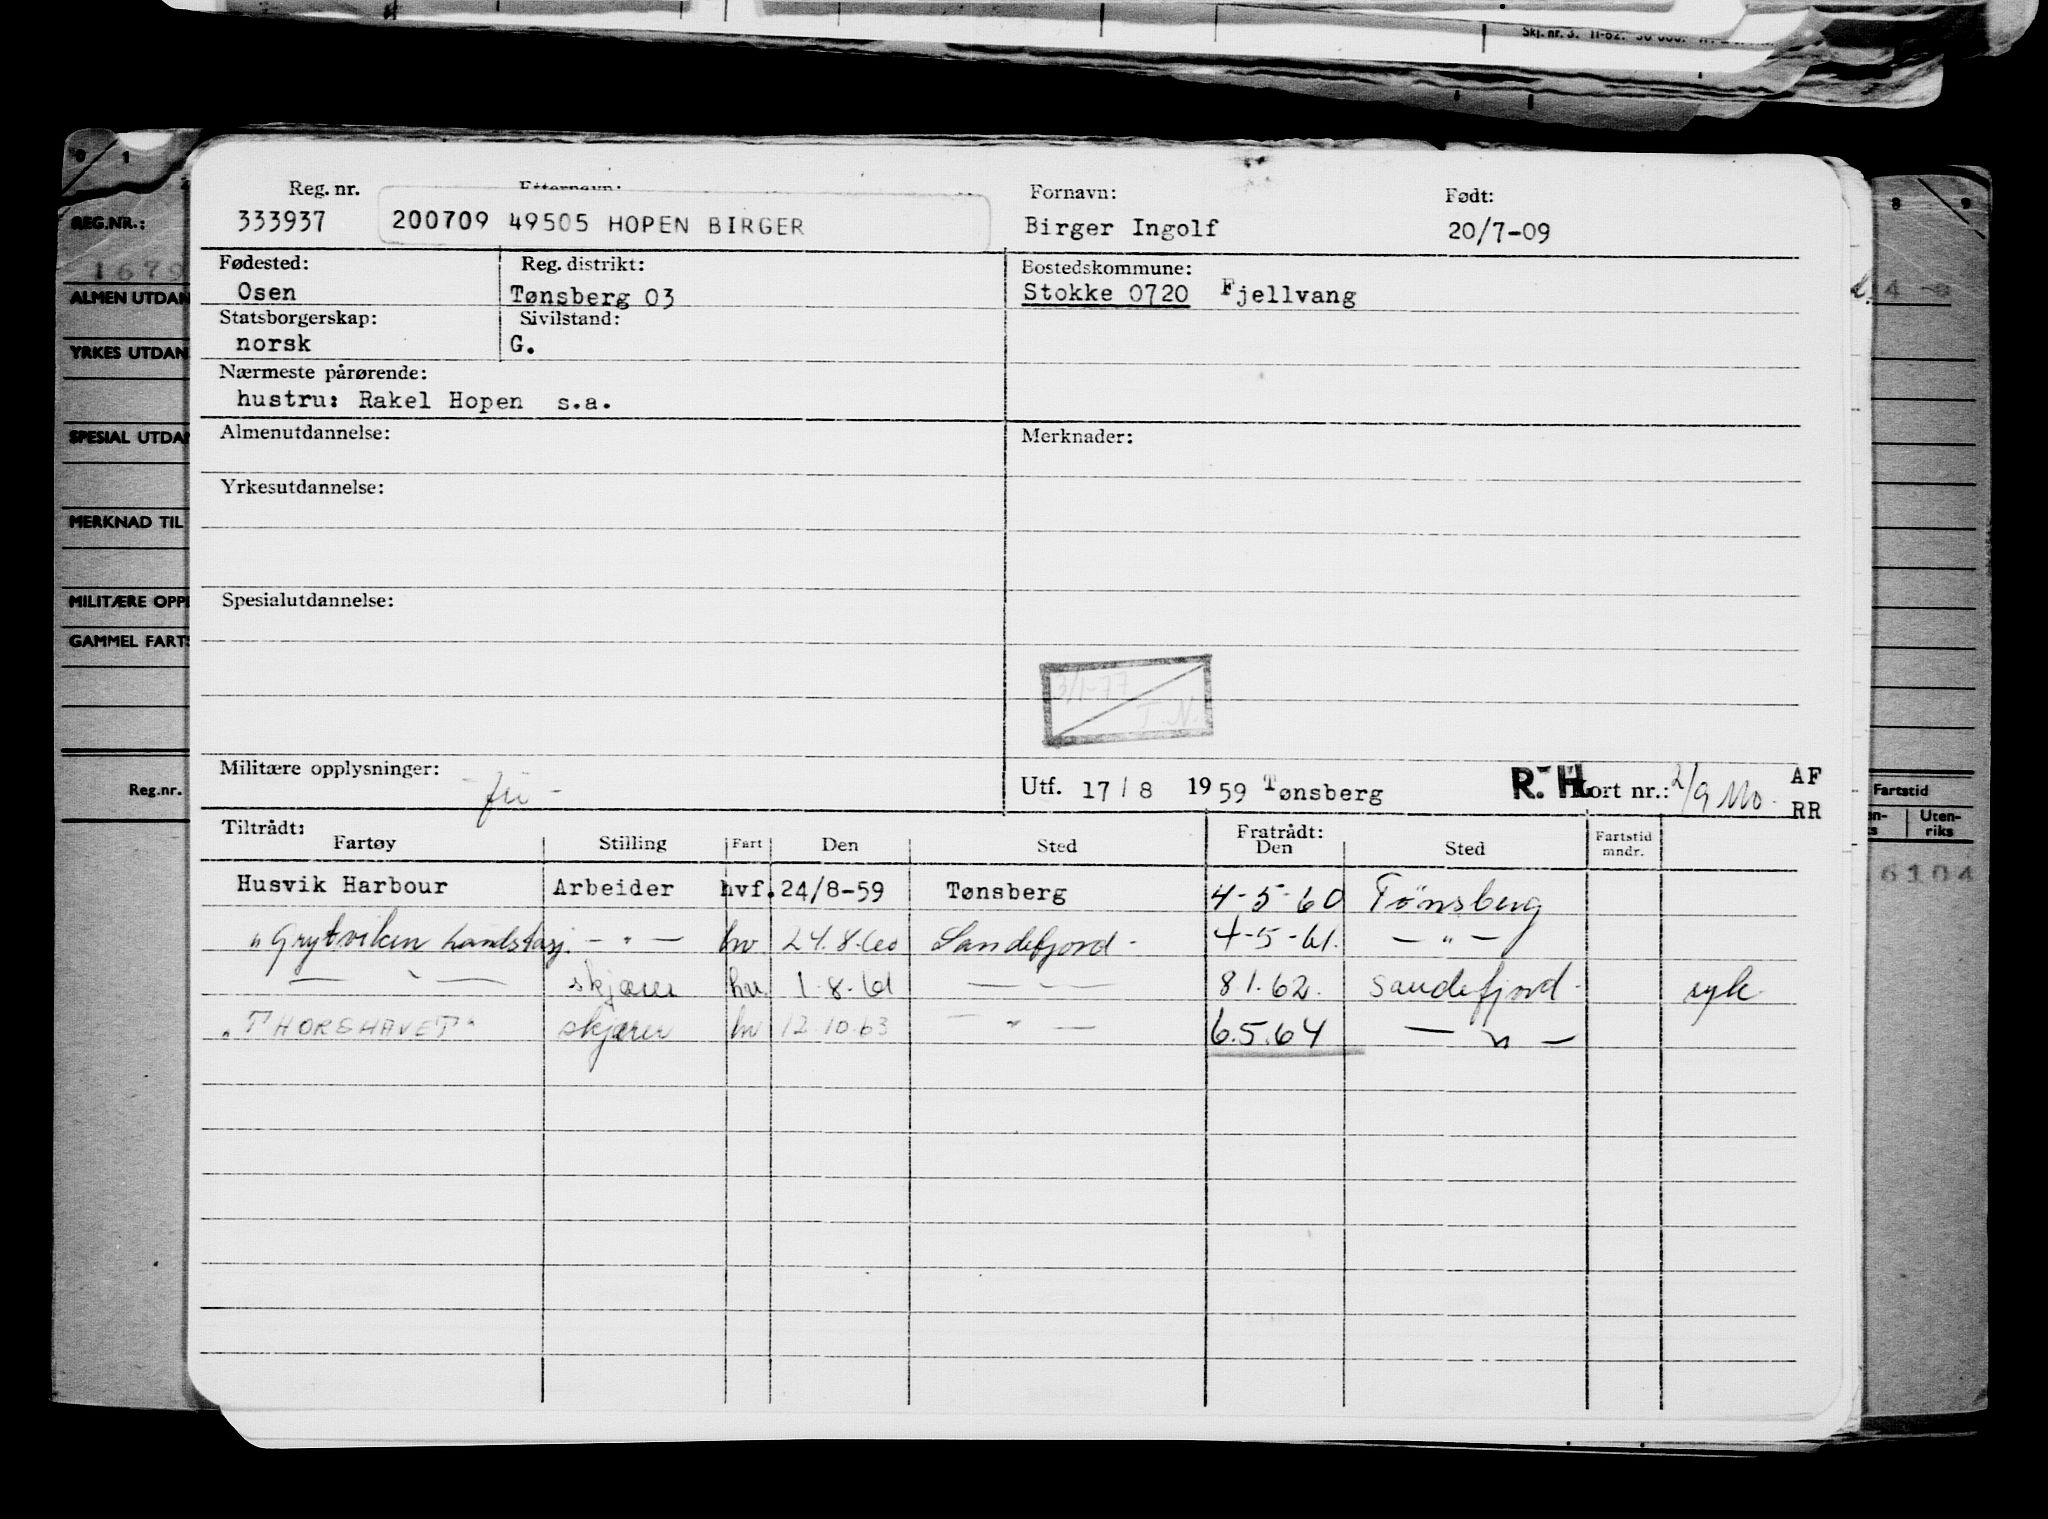 Skj. nr. 3. 11-62.
0 1
8 9
REG.NR.:
1679
ALMEN UTDAN
YRKES UTDAN
SPESIAL UTDAN
MERKNAD TIL
MILITÆRE OPPL
GAMMEL FARTS
Reg.nr.
Reg. nr. Etternavn: Fornavn: Født:
333937 200709 49505 HOPEN BIRGER Birger Ingolf 20/7-09
Fødested: Reg. distrikt: Bostedskommune:
Osen Tønsberg 03 Stokke 0720 Fjellvang
Statsborgerskap: Sivilstand:
norsk G.
Nærmeste pårørende:
hustru: Rakel Hopen s.a.
Almenutdannelse: Merknader:
Yrkesutdannelse:
Spesialutdannelse:
3/1-77
T.N.
Militære opplysninger: - fri -
Utf. 17/8 1959 Tønsberg R. H. Kort nr.: 2/9 Mo. AF
RR
Tiltrådt: Fratrådt:
Fartøy Stilling Fart Den Sted Den Sted Fartstid mndr.
Husvik Harbour Arbeider hvf. 24/8-59 Tønsberg 4-5-60 Tønsberg
"Grytviken landstasj. - " - hv 24.8.60 Sandefjord - 4-5-61. - " -
- " - skjærer hv. 1.8.61 - " - 8.1.62. Sandefjord syk
"THORSHAVET" skjærer hv 12.10.63 - " - 6.5.64 - " -
Fartstid
Uten-
riks
6104